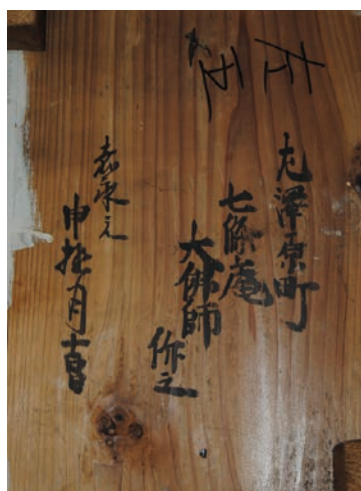 澤原町
七條庵
大佛師
作之
嘉永元
申拾月吉日